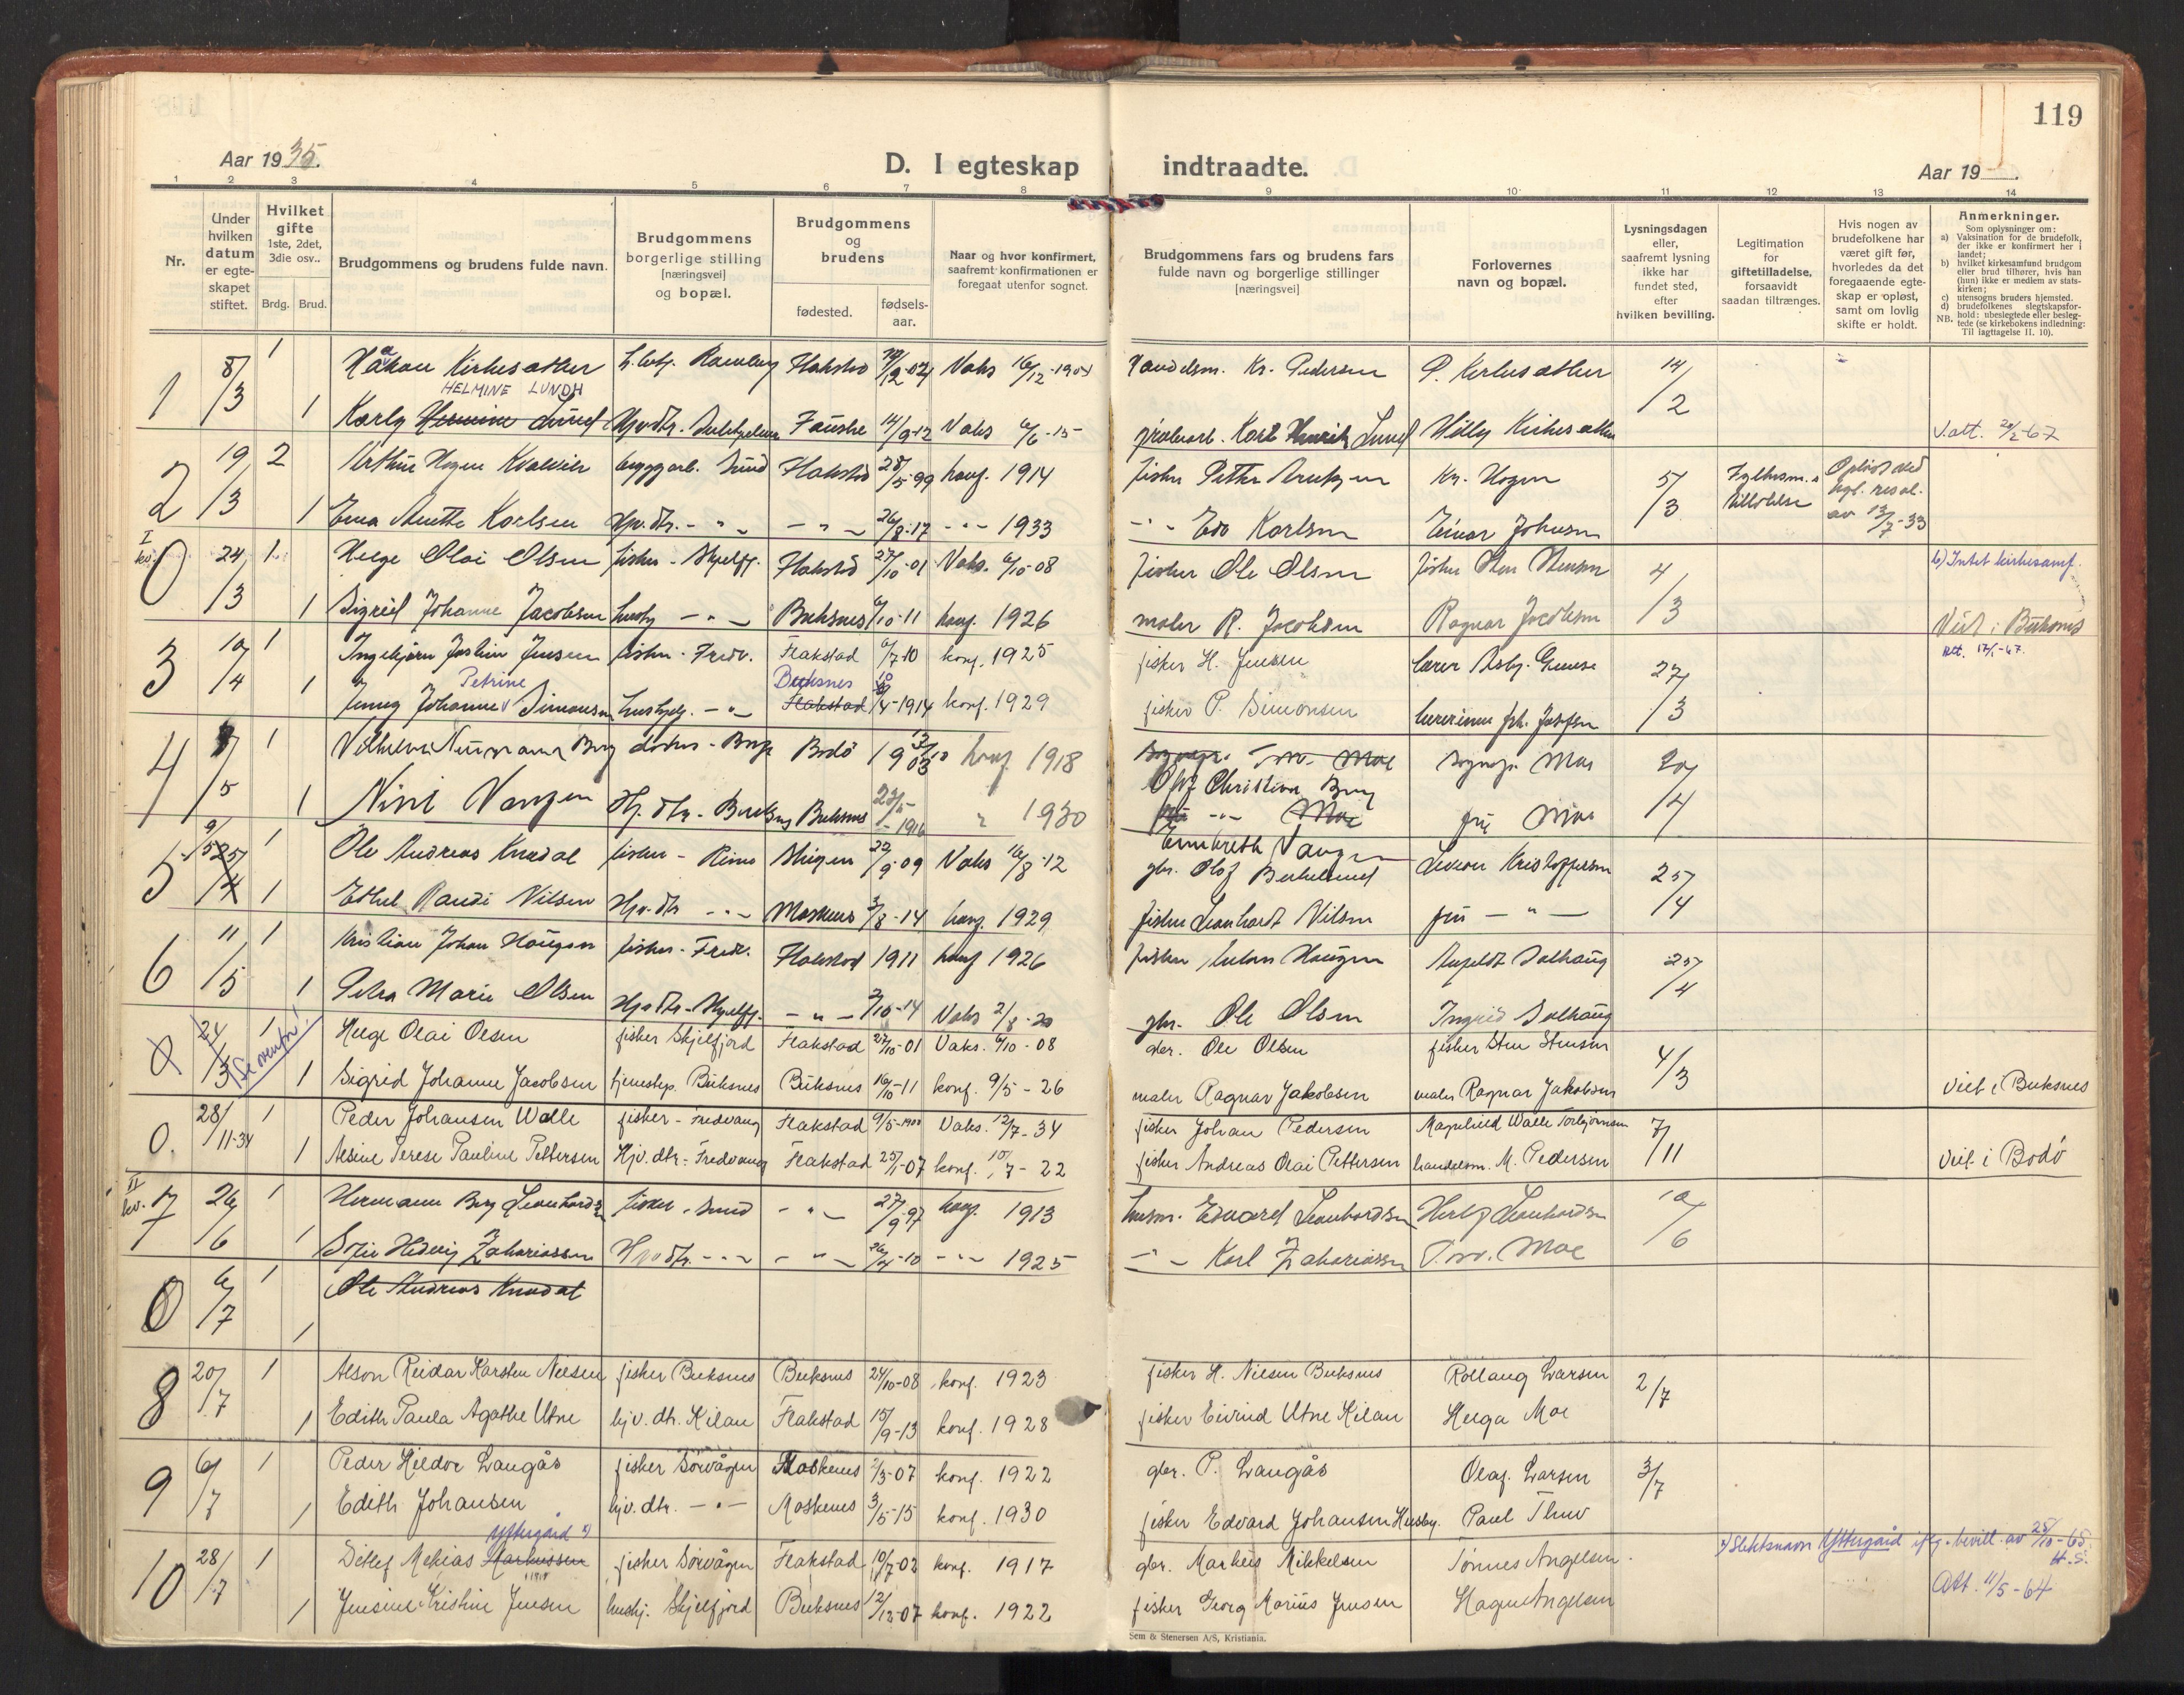 119
Aar 1935.
D. I egteskap indtraadte.
Aar 19
1 2 3 4 5 6 7 8 9 10 11 12 13 14
Nr.
Under hvilken datum er egteskapet stiftet.
Hvilket gifte 1ste, 2det, 3die osv..
Brdg. Brud.
Brudgommens og brudens fulde navn.
Brudgommens borgerlige stilling [næringsvei] og bopæl.
Brudgommens og brudens
fødested. fødsels-aar.
Naar og hvor konfirmert, saafremt konfirmationen er foregaat utenfor sognet.
Brudgommens fars og brudens fars fulde navn og borgerlige stillinger [næringsvei]
Forlovernes navn og bopæl.
Lysningsdagen eller, saafremt lysning ikke har fundet sted, efter hvilken bevilling.
Legitimation for giftetilladelse, forsaavidt saadan tiltrænges.
Hvis nogen av brudefolkene har været gift før, hvorledes da det foregaaende egteskap er opløst, samt om lovlig skifte er holdt.
Anmerkninger.
Som oplysninger om:
a) Vaksination for de brudefolk, der ikke er konfirmert her i landet;
b) hvilket kirkesamfund brudgom eller brud tilhører, hvis han (hun) ikke er medlem av statskirken;
c) utensogns bruders hjemsted.
d) brudefolkenes slegtskapsforhold: ubeslegtede eller beslegtede (se kirkebokens indledning: Til iagttagelse II. 10).
NB.
1 8/3 1 Håkon Kirkesæther Ramberg Flakstad Vaks 16/12-1904 Handelsm. Kr. Pedersen P. Kirkesæther 14/2
HELMINE LUNDH
1 Karly Hermine Lund Hjv.dtr. Sulitjelma Fauske 14/9-12 Vaks 6/6-15 Karl Henrik Lund Willy Kirkesæther V.att. 20/2-67
2 19/3 2 Arthur Hagen Kvalvik byggarb. Sund Flakstad 28/5-99 konf. 1914 fisker Petter Kr. Hagen 5/3 Fylkesm.s tillatelse Opløst ved kgl. resol. av 13/7-33
1 Erna Anette Karlsen Hjv.dtr. - " - - " - 26/8-17 - " - 1933 - " - Edv Karlsen Einar Johnsen
I kv. 0 24/3 1 Helge Olai Olsen fisker - Skjelfj. Flakstad 27/10-01 Vaks. 6/10-08 fisker Ole Olsen fisker Sten Stensen 4/3 b) Intet kirkesamf.
1 Sigrid Johanne Jacobsen - " - Buksnes 16/10-11 konf. 1926 maler R. Jacobsen Ragnar Jacobsen Viet i Buksnes
3 10/4 1 Ingebjørn Joakim Jensen fisker - Fredv. Flakstad 6/7-10 konf. 1925 fisker H. Jensen lærer Asbj. Gunse 27/3 Att. 17/1-67.
Petrine Buksnes 10
1 Jenny Johanne Simonsen hushjelp. - " - Flakstad /4-1914 konf. 1929 fisker P. Simonsen lærerinne Joh. Josefsen
4 /5 1 Vilhelm Berg Bodö 1903 konf 1918 Sogneprest Moe Sognepr. Moe 20/4
Olaf Christian Berg
1 Nini Vangen Hj.dtr. - Buksnes 23/5-1916 " 1930 fru - " - Moe fru Moe
Vangen
5 9/5 25/4 1 Ole Andreas Knudal fisker - Reine 22/9-09 Vaks 16/8-12 gbr. Olaf Kristoffersen 25/4
1 Ethel Randi Nilsen Hjv.dtr - " - Moskenes 3/8-14 konf. 1929 fisker Leonhardt Nilsen fru - " -
6 11/5 1 Kristian Johan Haugen fisker - Fredv. Flakstad 1911 konf 1926 fisker Haugen Solhaug 25/4
1 Petra Marie Olsen Hjv.dtr - Skjelfj. - " - 2/10-14 Vaks 2/8-20 gbr. Ole Olsen Ingrid Solhaug
0 24/3 1 Helge Olai Olsen fisker Skjelfjord Flakstad 27/10-01 Vaks. 6/10-08 gbr. Ole Olsen fisker Sten Stensen 4/3
(Se ovenfor!
1 Sigrid Johanne Jacobsen hjemehp. Buksnes Buksnes 16/10-11 konf. 9/5-26 maler Ragnar Jakobsen maler Ragnar Jakobsen viet i Buksnes
0. 28/11-34 1 Peder Johansen Walle fisker - Fredvang Flakstad 9/5-1900 Vaks. 12/7-34 fisker Johan Pedersen Magnhild Walle Torbjørnsen 7/11
1 Alsine Terese Pauline Pettersen Hjv. dtr. - Fredvang Flakstad 25/1-07 konf. 10/7-22 fisker Andreas Olai Pettersen handelsm. M. Pedersen viet i Bodö
II kv. 7 26/6 1 Hermann Berg Leonhardsen fisker - Sund - " - 27/9-97 konf. 1913 Edvard Leonhardsen Leonhardsen 10/6
1 Sofie Hedvig Zahariassen Hjv dtr. - " - - " - 26/4-10 - " - 1925 - " - Karl Zahariassen Moe
0 6/7 1 Ole Andreas Knudal
1
8 20/7 1 Alson Reidar Karsten Nilsen fisker Buksnes Buksnes 24/10-08 konf. 1923 fisker H. Nilsen Buksnes Rollaug Larsen 2/7
1 Edith Paula Agathe Utne hjv. dtr. Kilan Flakstad 15/9-13 konf. 1928 fisker Eivind Utne Kilan Helga Moe
9 6/7 1 Peder Hildor Langås fisker Sörvågen Moskenes 2/3-07 konf. 1922 gbr. P. Langås Olaf Larsen 3/7
1 Edith Johansen hjv. dtr. - " - Moskenes 3/5-15 konf. 1930 fisker Edvard Johansen Husby. Paul Thuv
Yttergård x)
10 28/7 1 Ditlef Mekias Markussen fisker Sörvågen Flakstad 10/7-02 konf. 1917 gbr. Markus Mikkelsen Tønnes Angelsen x) Slektsnavn Yttergård iflg. bevill. av 25/10-65. H.S.
1 Jensine Kristine Jensen hushj. Skjelfjord Buksnes 12/12-07 konf. 1922 fisker Georg Marius Jensen Angelsen Att. 11/5-64
Sem & Stenersen A/S, Kristiania.